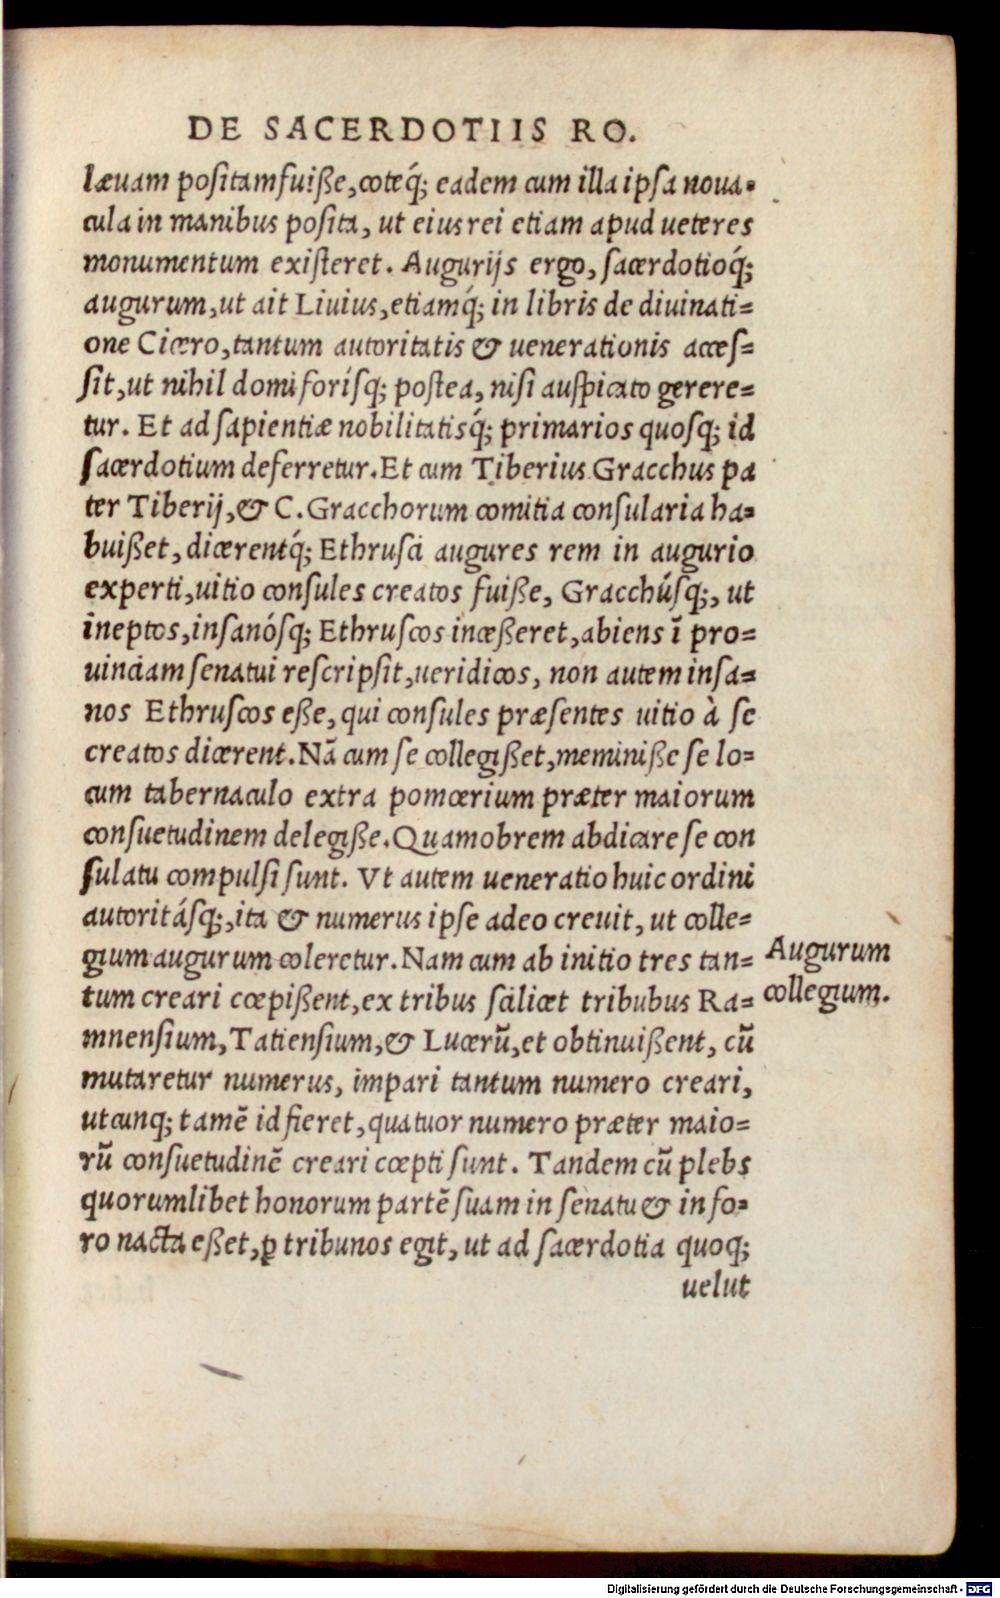 DE SACERDOTIIS RO.
lævam positam fuiße, coteq́; eadem cum illa ipsa noua=
cula in manibus posita, ut eius rei etiam apud ueteres
monumentum existeret. Augurijs ergo, sacerdotioq́;
augurum, ut ait Liuius, etiamq́; in libris de diuinati=
one Cicero, tantum autoritatis & uenerationis acces=
sit, ut nihil domi forísq; postea, nisi auspicato gerere=
tur. Et ad sapientiæ nobilitatisq́; primarios quosq; id
sacerdotium deferretur. Et cum Tiberius Gracchus pa
ter Tiberij, & C. Gracchorum comitia consularia ha=
buißet, dicerentq́; Ethrusci augures rem in augurio
experti, uitio consules creatos fuiße, Gracchúsq;, ut
ineptos, insanósq; Ethruscos inceßeret, abiens ī pro=
uinciam senatui rescripsit, ueridicos, non autem insa=
nos Ethruscos eße, qui consules præsentes uitio à se
creatos dicerent. Nā cum se collegißet, meminiße se lo=
cum tabernaculo extra pomœrium præter maiorum
consuetudinem delegiße. Quamobrem abdicare se con
sulatu compulsi sunt. Vt autem ueneratio huic ordini
autoritásq;, ita & numerus ipse adeo crevit, ut colle=
gium augurum coleretur. Nam cum ab initio tres tan=
tum creari cœpißent, ex tribus scilicet tribubus Ra=
mnensium, Tatiensium, & Lucerū, et obtinuißent, cū
mutaretur numerus, impari tantum numero creari,
utcunq; tamē id fieret, quatuor numero præter maio=
rū consuetudinē creari cœpti sunt. Tandem cū plebs
quorumlibet honorum partē suam in senatu & in fo=
ro nacta eßet, ꝑ tribunos egit, ut ad sacerdotia quoq;
uelut
Augurum
collegium.
Digitalisierung gefördert durch die Deutsche Forschungsgemeinschaft - DFG